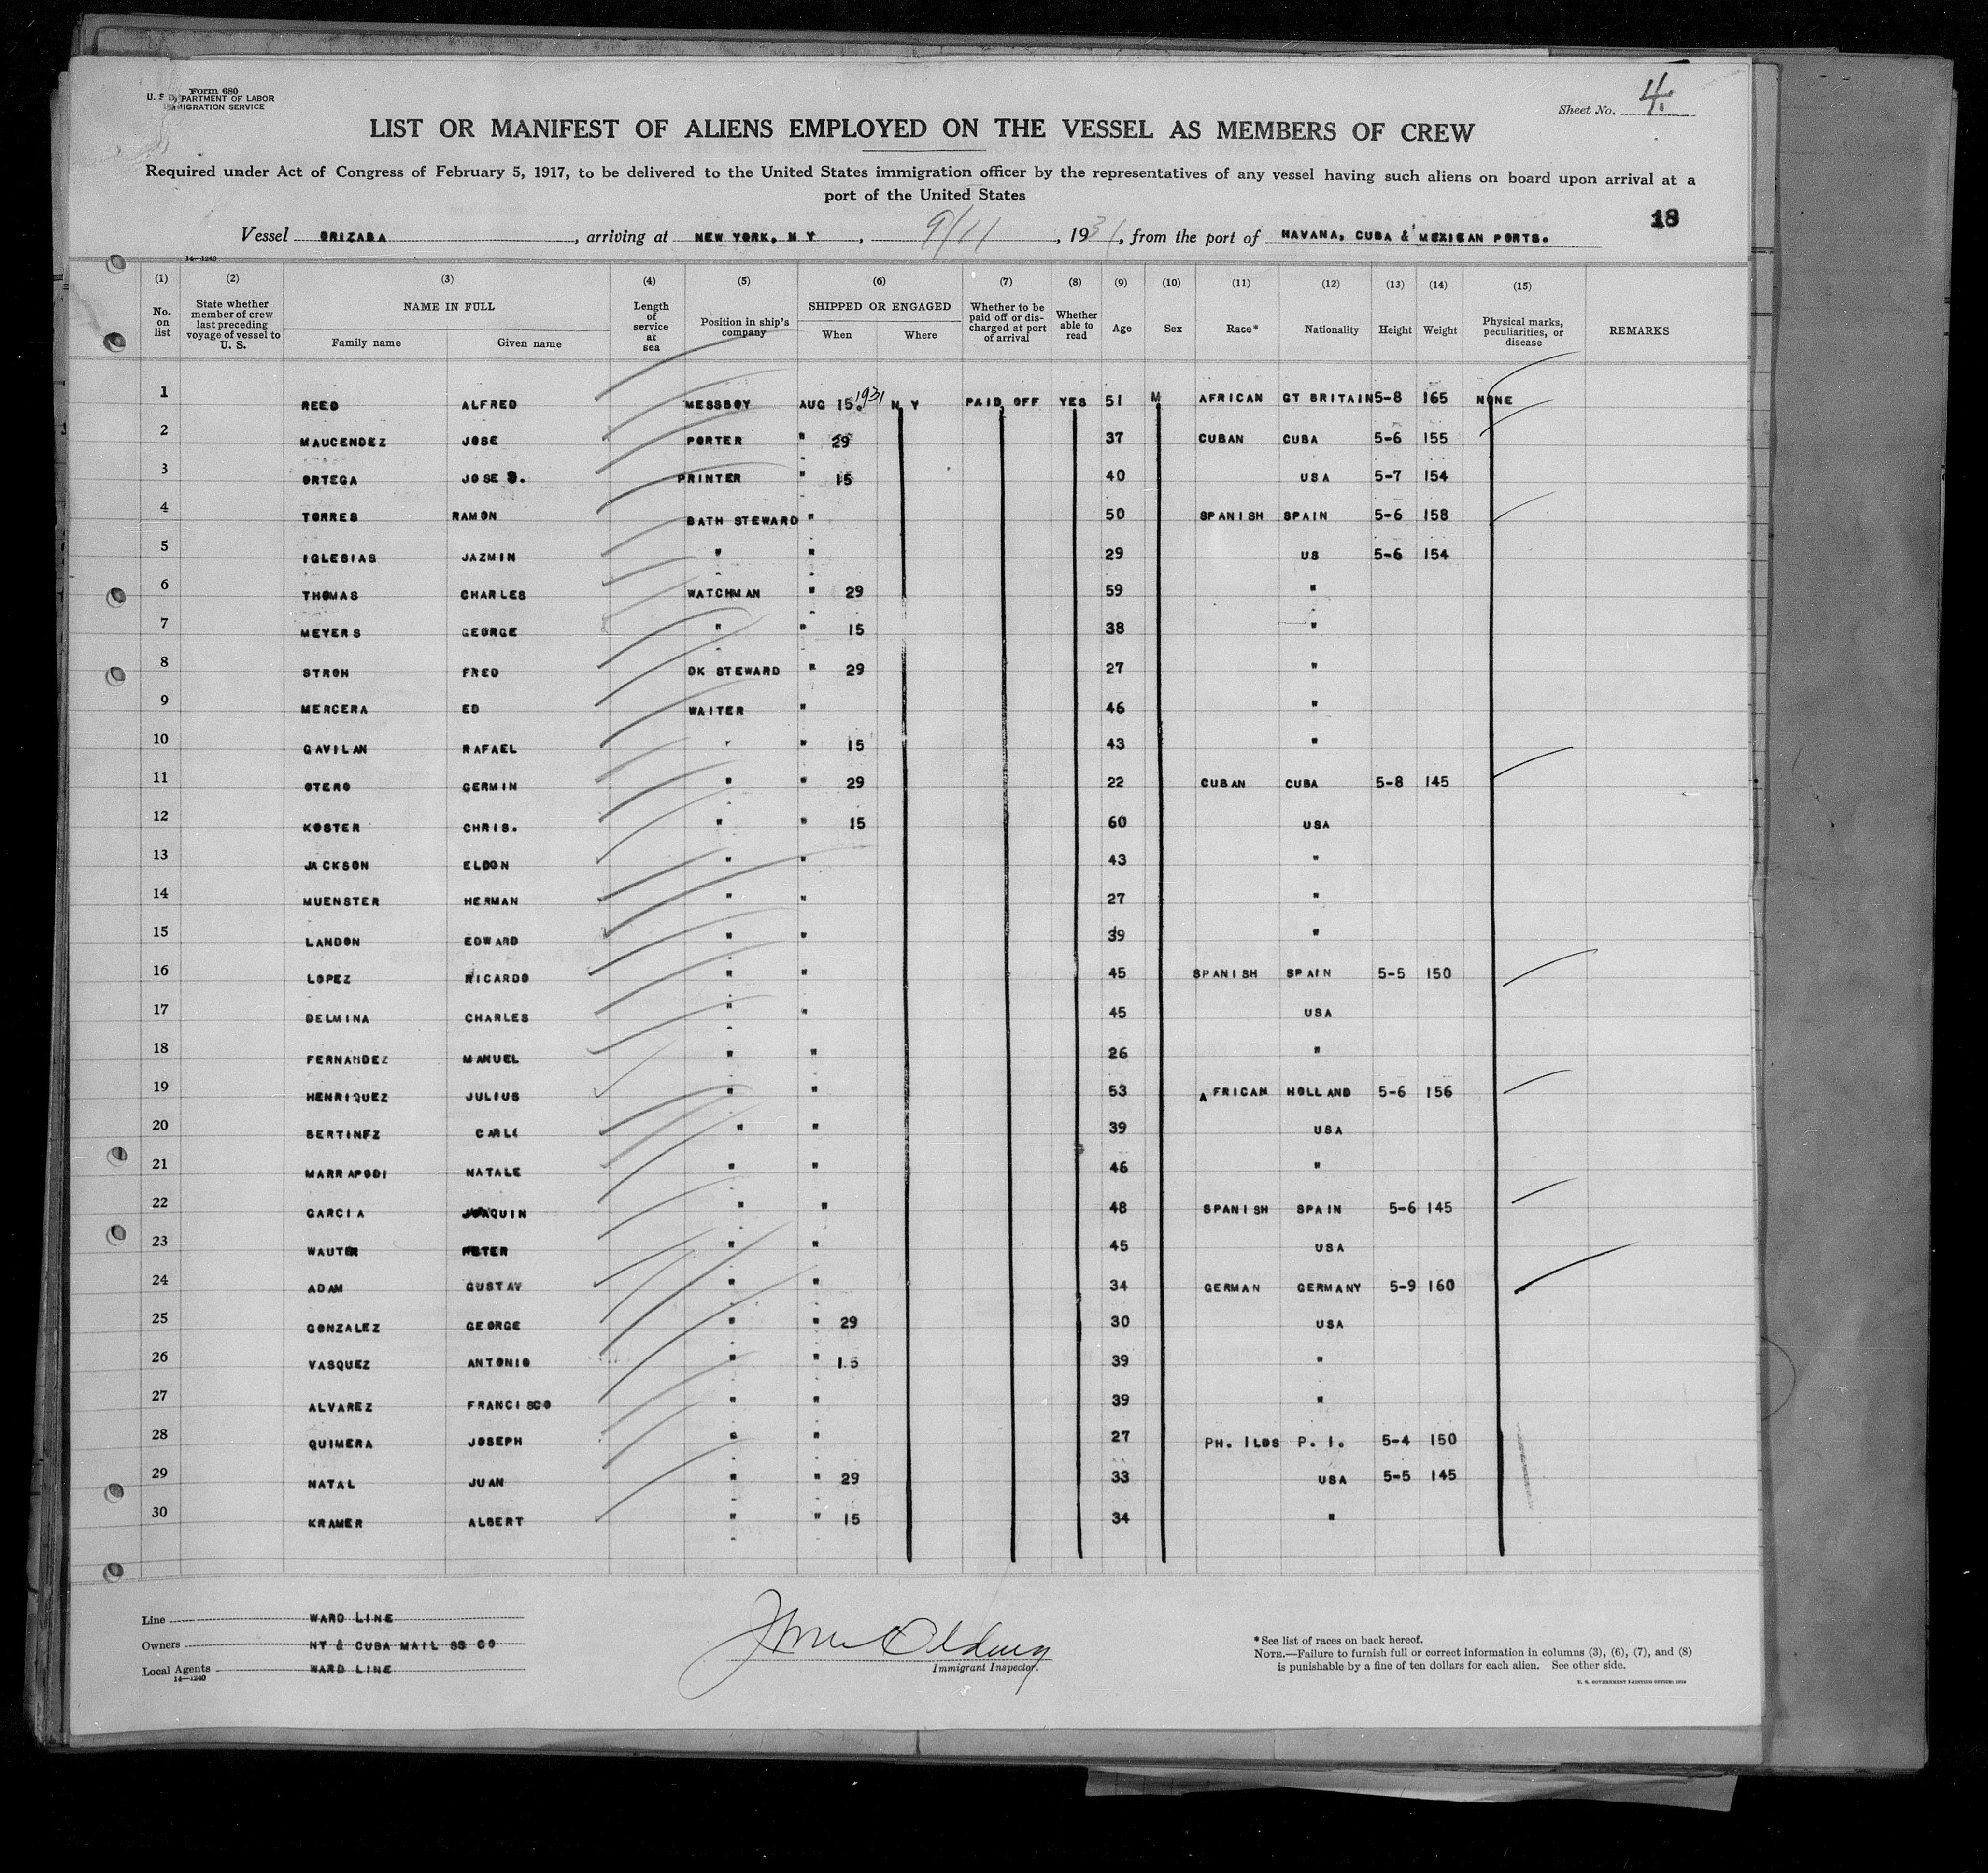 Form 680
U. S. DEPARTMENT OF LABOR
IMMIGRATION SERVICE
Sheet No. 4.
LIST OR MANIFEST OF ALIENS EMPLOYED ON THE VESSEL AS MEMBERS OF CREW
Required under Act of Congress of February 5, 1917, to be delivered to the United States immigration officer by the representatives of any vessel having such aliens on board upon arrival at a
port of the United States
18
Vessel ORIZABA, arriving at NEW YORK, N Y, 9/11, 1931, from the port of HAVANA, CUBA & MEXICAN PORTS.
14—1240
(1) (2) (3) (4) (5) (6) (7) (8) (9) (10) (11) (12) (13) (14) (15)
No. on list State whether member of crew last preceding voyage of vessel to U. S. NAME IN FULL Family name Given name Length of service at sea Position in ship's company SHIPPED OR ENGAGED When Where Whether to be paid off or discharged at port of arrival Whether able to read Age Sex Race* Nationality Height Weight Physical marks, peculiarities, or disease REMARKS
1 REED ALFRED MESSBOY AUG 15. 1931 N Y PAID OFF YES 51 M AFRICAN GT BRITAIN 5-8 165 NONE
2 MAUCENDEZ JOSE PORTER " 29 37 CUBAN CUBA 5-6 155
3 ORTEGA JOSE PRINTER " 15 40 USA 5-7 154
4 TORRES RAMON BATH STEWARD " 50 SPANISH SPAIN 5-6 158
5 IGLESIAS JAZMIN " " 29 US 5-6 154
6 THOMAS CHARLES WATCHMAN " 29 59 "
7 MEYERS GEORGE " " 15 38 "
8 STROH FRED DK STEWARD " 29 27 "
9 MERCERA ED WAITER " 46 "
10 GAVILAN RAFAEL " " 15 43 "
11 OTERO GERMIN " " 29 22 CUBAN CUBA 5-8 145
12 KOSTER CHRIS. " " 15 60 USA
13 JACKSON ELDON " " 43 "
14 MUENSTER HERMAN " " 27 "
15 LANDON EDWARD " " 39 "
16 LOPEZ RICARDO " " 45 SPANISH SPAIN 5-5 150
17 DELMINA CHARLES " " 45 USA
18 FERNANDEZ MANUEL " " 26 "
19 HENRIQUEZ JULIUS " " 53 AFRICAN HOLLAND 5-6 156
20 BERTINEZ " " 39 USA
21 MARRAPODI NATALE " " 46 "
22 GARCIA JOAQUIN " " 48 SPANISH SPAIN 5-6 145
23 WAUTER PETER " " 45 USA
24 ADAM GUSTAV " " 34 GERMAN GERMANY 5-9 160
25 GONZALEZ GEORGE " " 29 30 USA
26 VASQUEZ ANTONIO " " 15 39 "
27 ALVAREZ FRANCISCO " " 39 "
28 QUIMERA JOSEPH " " 27 PH. ILDS P. I. 5-4 150
29 NATAL JUAN " " 29 33 USA 5-5 145
30 KRAMER ALBERT " " 15 34 "
Line WARD LINE
Owners NY & CUBA MAIL SS CO
Local Agents WARD LINE
14—1240
Immigrant Inspector.
*See list of races on back hereof.
NOTE.—Failure to furnish full or correct information in columns (3), (6), (7), and (8)
is punishable by a fine of ten dollars for each alien. See other side.
U. S. GOVERNMENT PRINTING OFFICE: